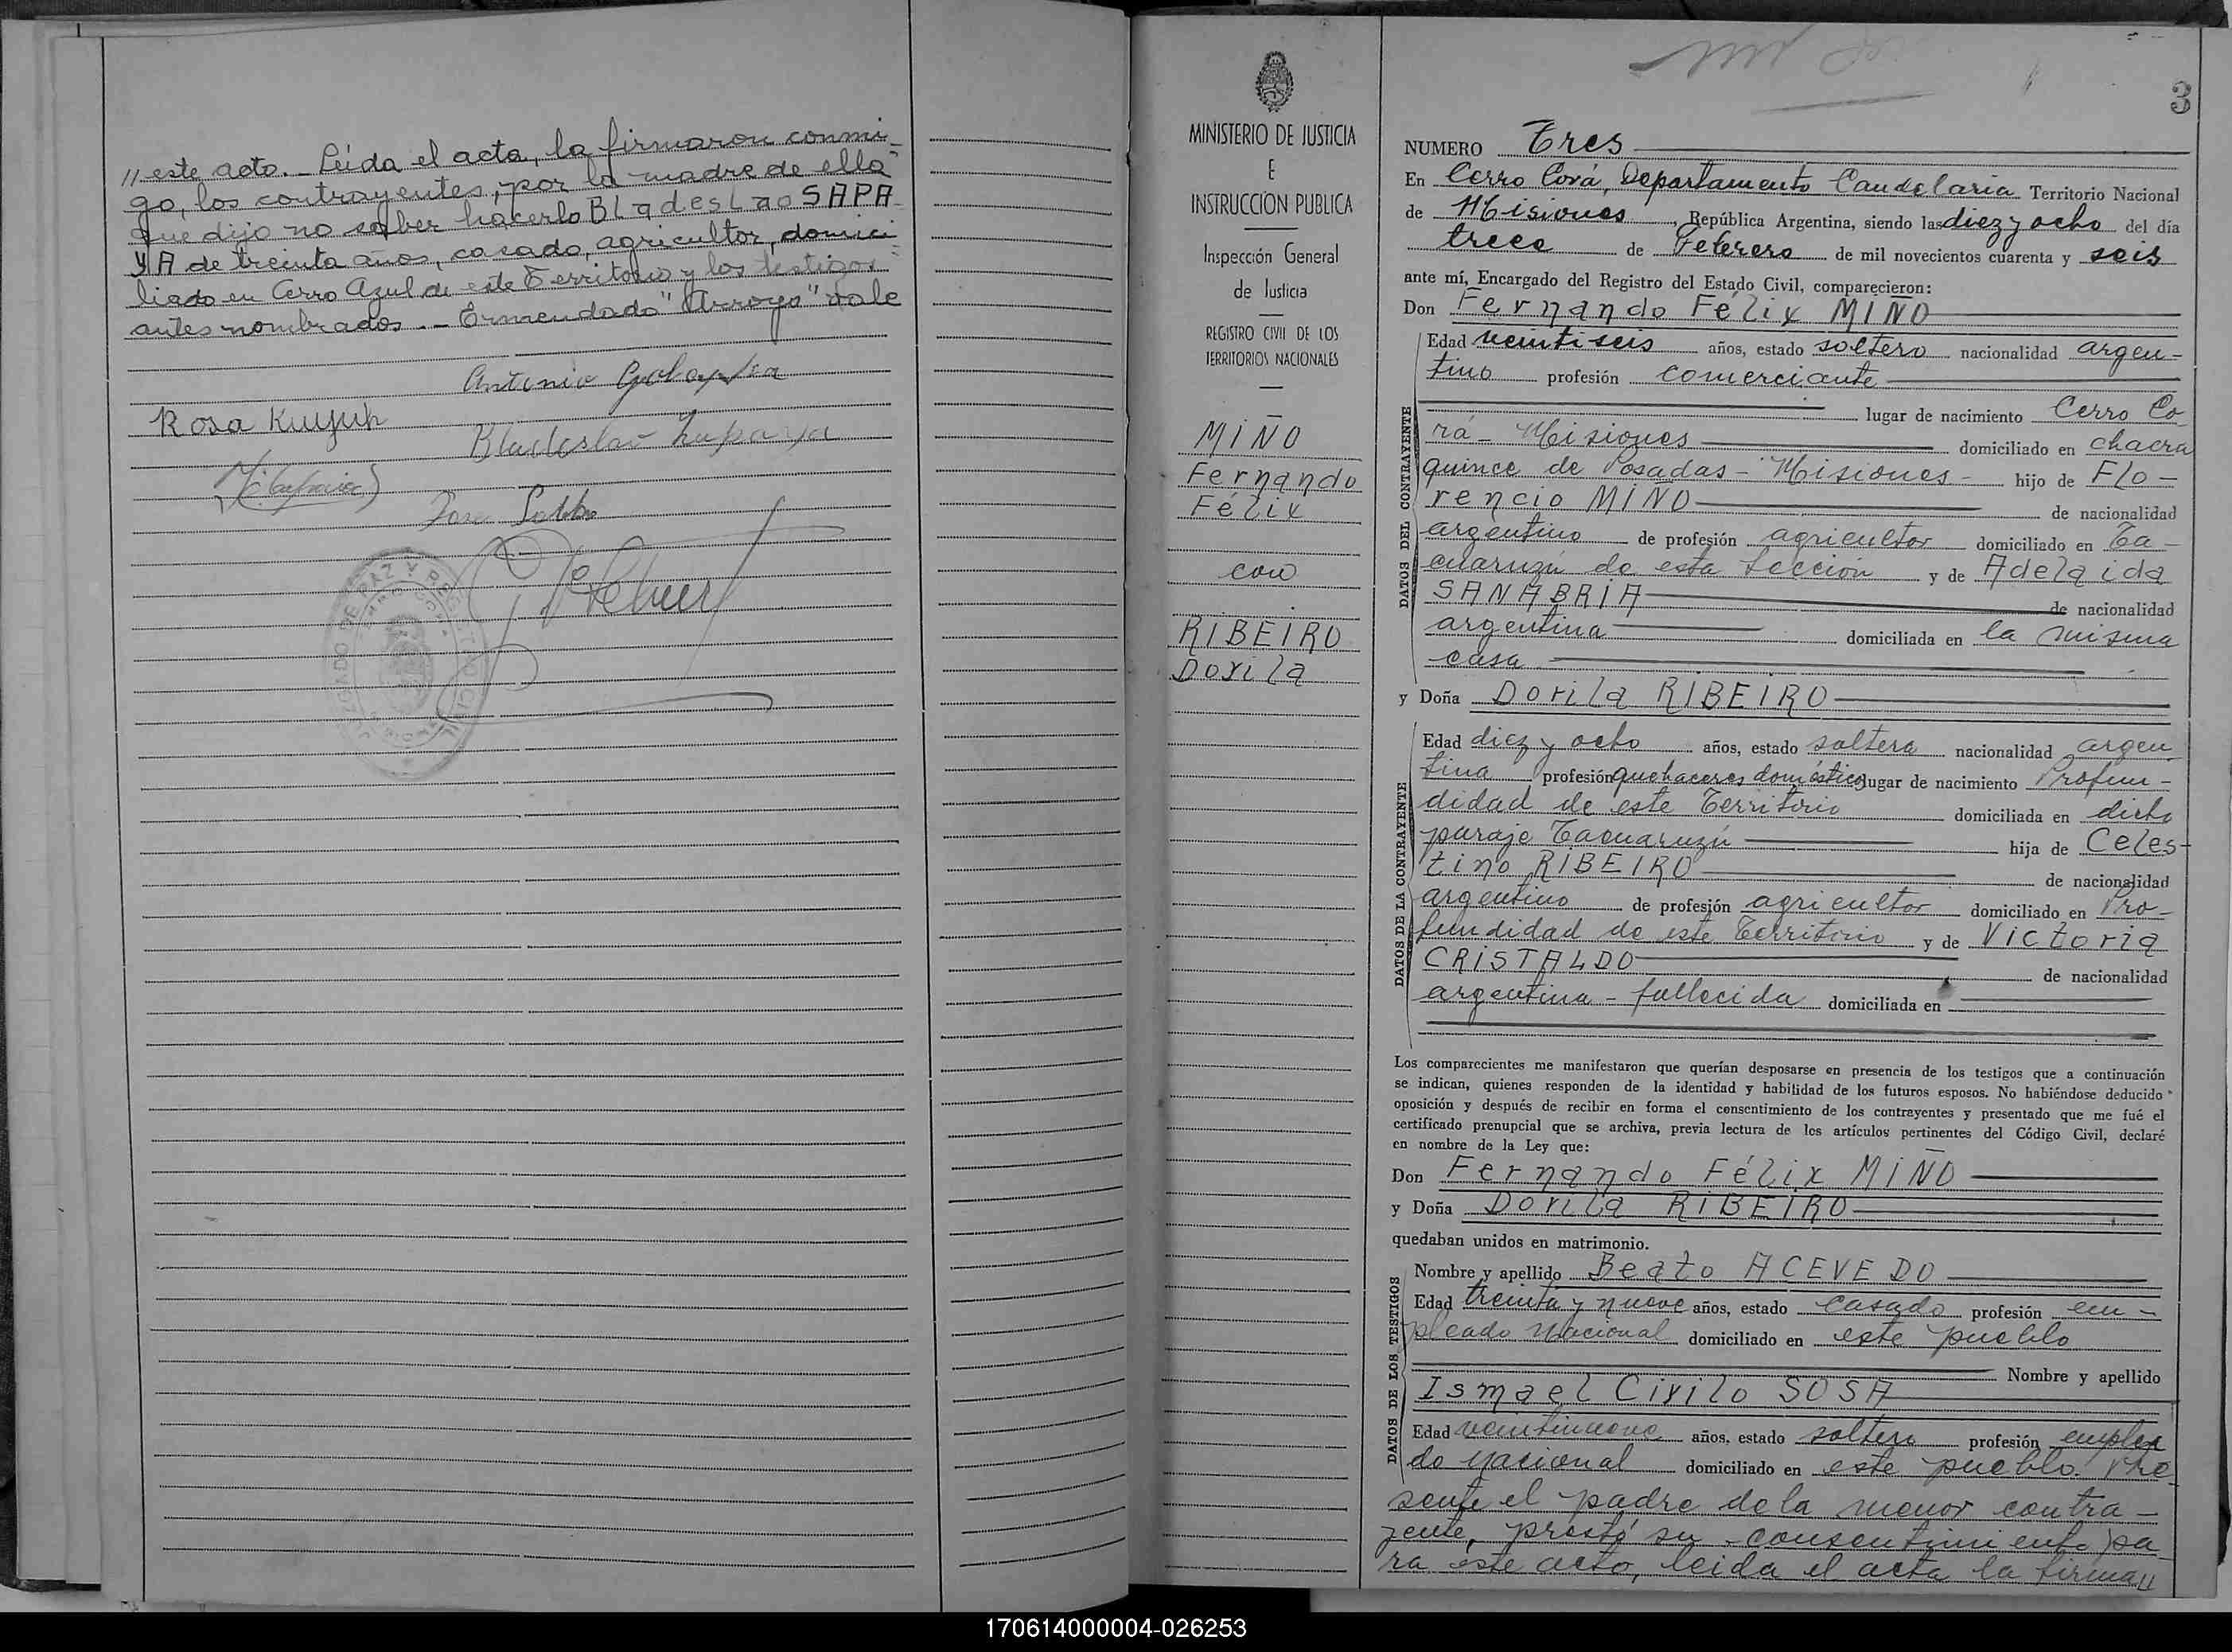 // este acto.- Leída el acta, la firmaron conmi-
go, los contrayentes, por la madre de ella
que dijo no saber hacerlo Bladeslao SAPA-
YA de treinta años, casado, agricultor, domici-
liado en Cerro Azul de este Territorio y los testigos
antes nombrados.- Enmendado "Arroyo" vale
Antonio
Rosa Kuyuh
Bladeslao Zupaya
José
MINISTERIO DE JUSTICIA
E
INSTRUCCIÓN PUBLICA
Inspección General
de Justicia
REGISTRO CIVIL DE LOS
TERRITORIOS NACIONALES
MIÑO
Fernando
Félix
con
RIBEIRO
Dorila
3
NUMERO Tres
En Cerro Corá, Departamento Candelaria Territorio Nacional
de Misiones, República Argentina, siendo las diez y ocho del día
trece de Febrero de mil novecientos cuarenta y seis
ante mí, Encargado del Registro del Estado Civil, comparecieron:
Don Fernando Félix MIÑO
DATOS DEL CONTRAYENTE
Edad veintiseis años, estado soltero nacionalidad argen-
tino profesión comerciante
lugar de nacimiento Cerro Co-
rá - Misiones domiciliado en chacra
quince de Posadas - Misiones - hijo de Flo-
rencio MIÑO de nacionalidad
argentino de profesión agricultor domiciliado en Ta-
cuaruzú de esta Sección y de Adelaida
SANABRIA de nacionalidad
argentina domiciliada en la misma
casa
y Doña Dorila RIBEIRO
DATOS DE LA CONTRAYENTE
Edad diez y ocho años, estado soltera nacionalidad argen
tina profesión quehaceres domésticos lugar de nacimiento Profun-
didad de este Territorio domiciliada en dicho
paraje Tacuaruzú hija de Celes-
tino RIBEIRO de nacionalidad
argentino de profesión agricultor domiciliado en Pro-
fundidad de este Territorio y de Victoria
CRISTALDO de nacionalidad
argentina - fallecida domiciliada en
Los comparecientes me manifestaron que querían desposarse en presencia de los testigos que a continuación
se indican, quienes responden de la identidad y habilidad de los futuros esposos. No habiéndose deducido
oposición y después de recibir en forma el consentimiento de los contrayentes y presentado que me fué el
certificado prenupcial que se archiva, previa lectura de los artículos pertinentes del Código Civil, declaré
en nombre de la Ley que:
Don Fernando Félix MIÑO
y Doña Dorila RIBEIRO
quedaban unidos en matrimonio.
DATOS DE LOS TESTIGOS
Nombre y apellido Beato ACEVEDO
Edad treinta y nueve años, estado casado profesión em-
pleado nacional domiciliado en este pueblo
Nombre y apellido
Ismael Cirilo SOSA
Edad veintinueve años, estado soltero profesión emplea
do nacional domiciliado en este pueblo. Pre-
sente el padre de la menor contra-
yente, prestó su consentimiento pa-
ra este acto, leida el acta la firma//
170614000004-026253